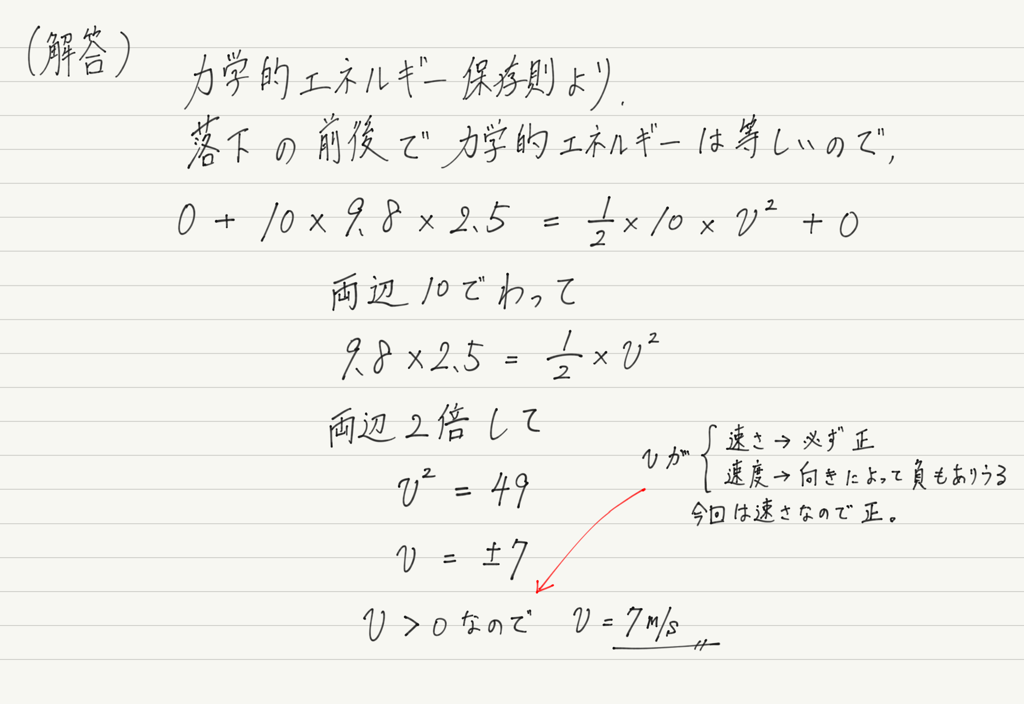 (解答)
力学的エネルギー保存則より.
落下の前後で力学的エネルギーは等しいので,
0 + 10 × 9.8 × 2.5 = 1/2 × 10 × v² + 0
両辺10でわって
9.8 × 2.5 = 1/2 × v²
両辺2倍して
v² = 49
v = ±7
v > 0 なので v = 7 m/s
vが { 速さ → 必ず正
速度 → 向きによって負もありうる
今回は速さなので正。